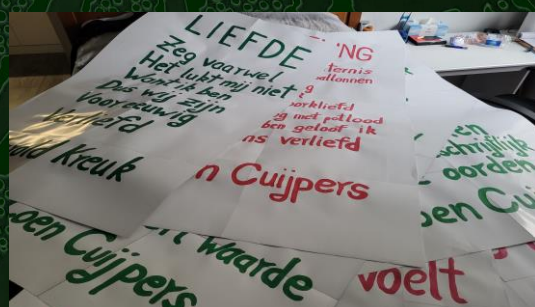 LIEFDE
Zeg vaarwel
Het lukt mij niet
Want ik ben
Dus wij zijn
Voor eeuwig
Verliefd
Kreuk
'NG
ternis
allonnen
g
orkliefd
g met potlood
ben geloof ik
ns verliefd
n Cuijpers
en
chrijflijk
oorden
oen Cui
oen Cuijpers
waarde
voelt